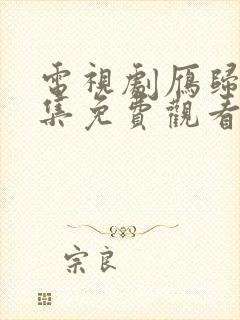 電視劇雁歸
集免費觀看
宗良